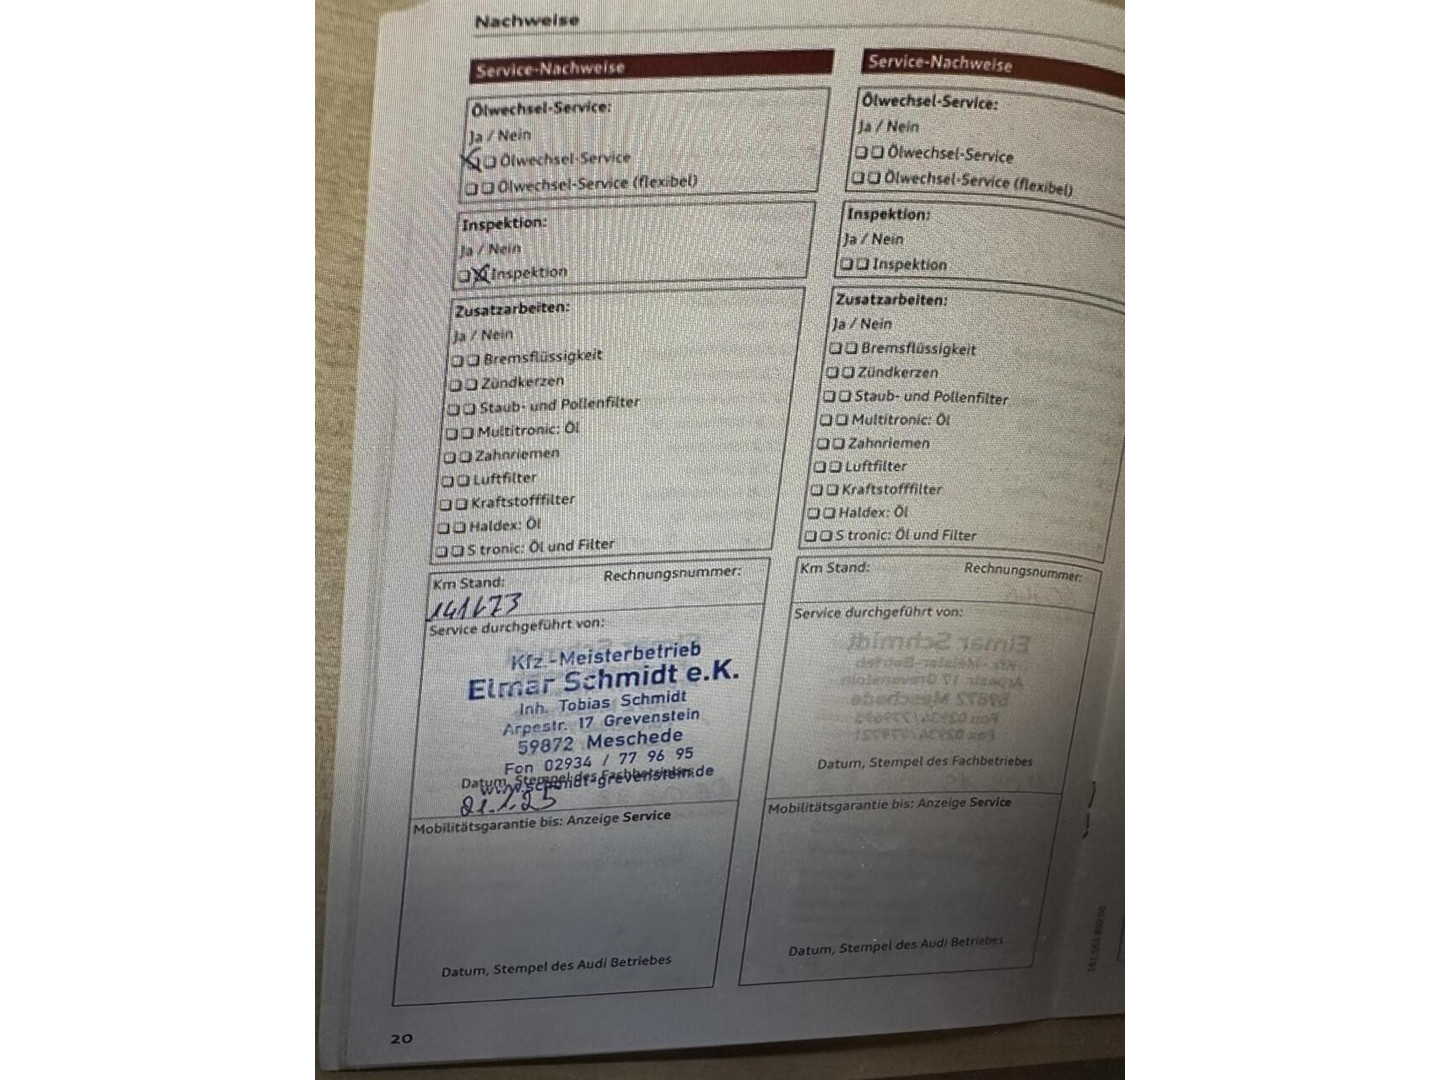 Nachweise
Service-Nachweise
Ölwechsel-Service:
Ja / Nein
Ölwechsel-Service
Ölwechsel-Service (flexibel)
Inspektion:
Ja / Nein
Inspektion
Zusatzarbeiten:
Ja / Nein
Bremsflüssigkeit
Zündkerzen
Staub- und Pollenfilter
Multitronic: Öl
Zahnriemen
Luftfilter
Kraftstofffilter
Haldex: Öl
S tronic: Öl und Filter
Km Stand: Rechnungsnummer:
Service durchgeführt von:
Kfz.-Meisterbetrieb
Elmar Schmidt e.K.
Inh. Tobias Schmidt
Arpestr. 17 Grevenstein
59872 Meschede
Fon 02934 / 77 96 95
Datum, Stempel des Fachbetriebes
www.schmidt-grevenstein.de
21.1.25
Mobilitätsgarantie bis: Anzeige Service
Datum, Stempel des Audi Betriebes
20
Service-Nachweise
Ölwechsel-Service:
Ja / Nein
Ölwechsel-Service
Ölwechsel-Service (flexibel)
Inspektion:
Ja / Nein
Inspektion
Zusatzarbeiten:
Ja / Nein
Bremsflüssigkeit
Zündkerzen
Staub- und Pollenfilter
Multitronic: Öl
Zahnriemen
Luftfilter
Kraftstofffilter
Haldex: Öl
S tronic: Öl und Filter
Km Stand: Rechnungsnummer:
Service durchgeführt von:
Datum, Stempel des Fachbetriebes
Mobilitätsgarantie bis: Anzeige Service
Datum, Stempel des Audi Betriebes